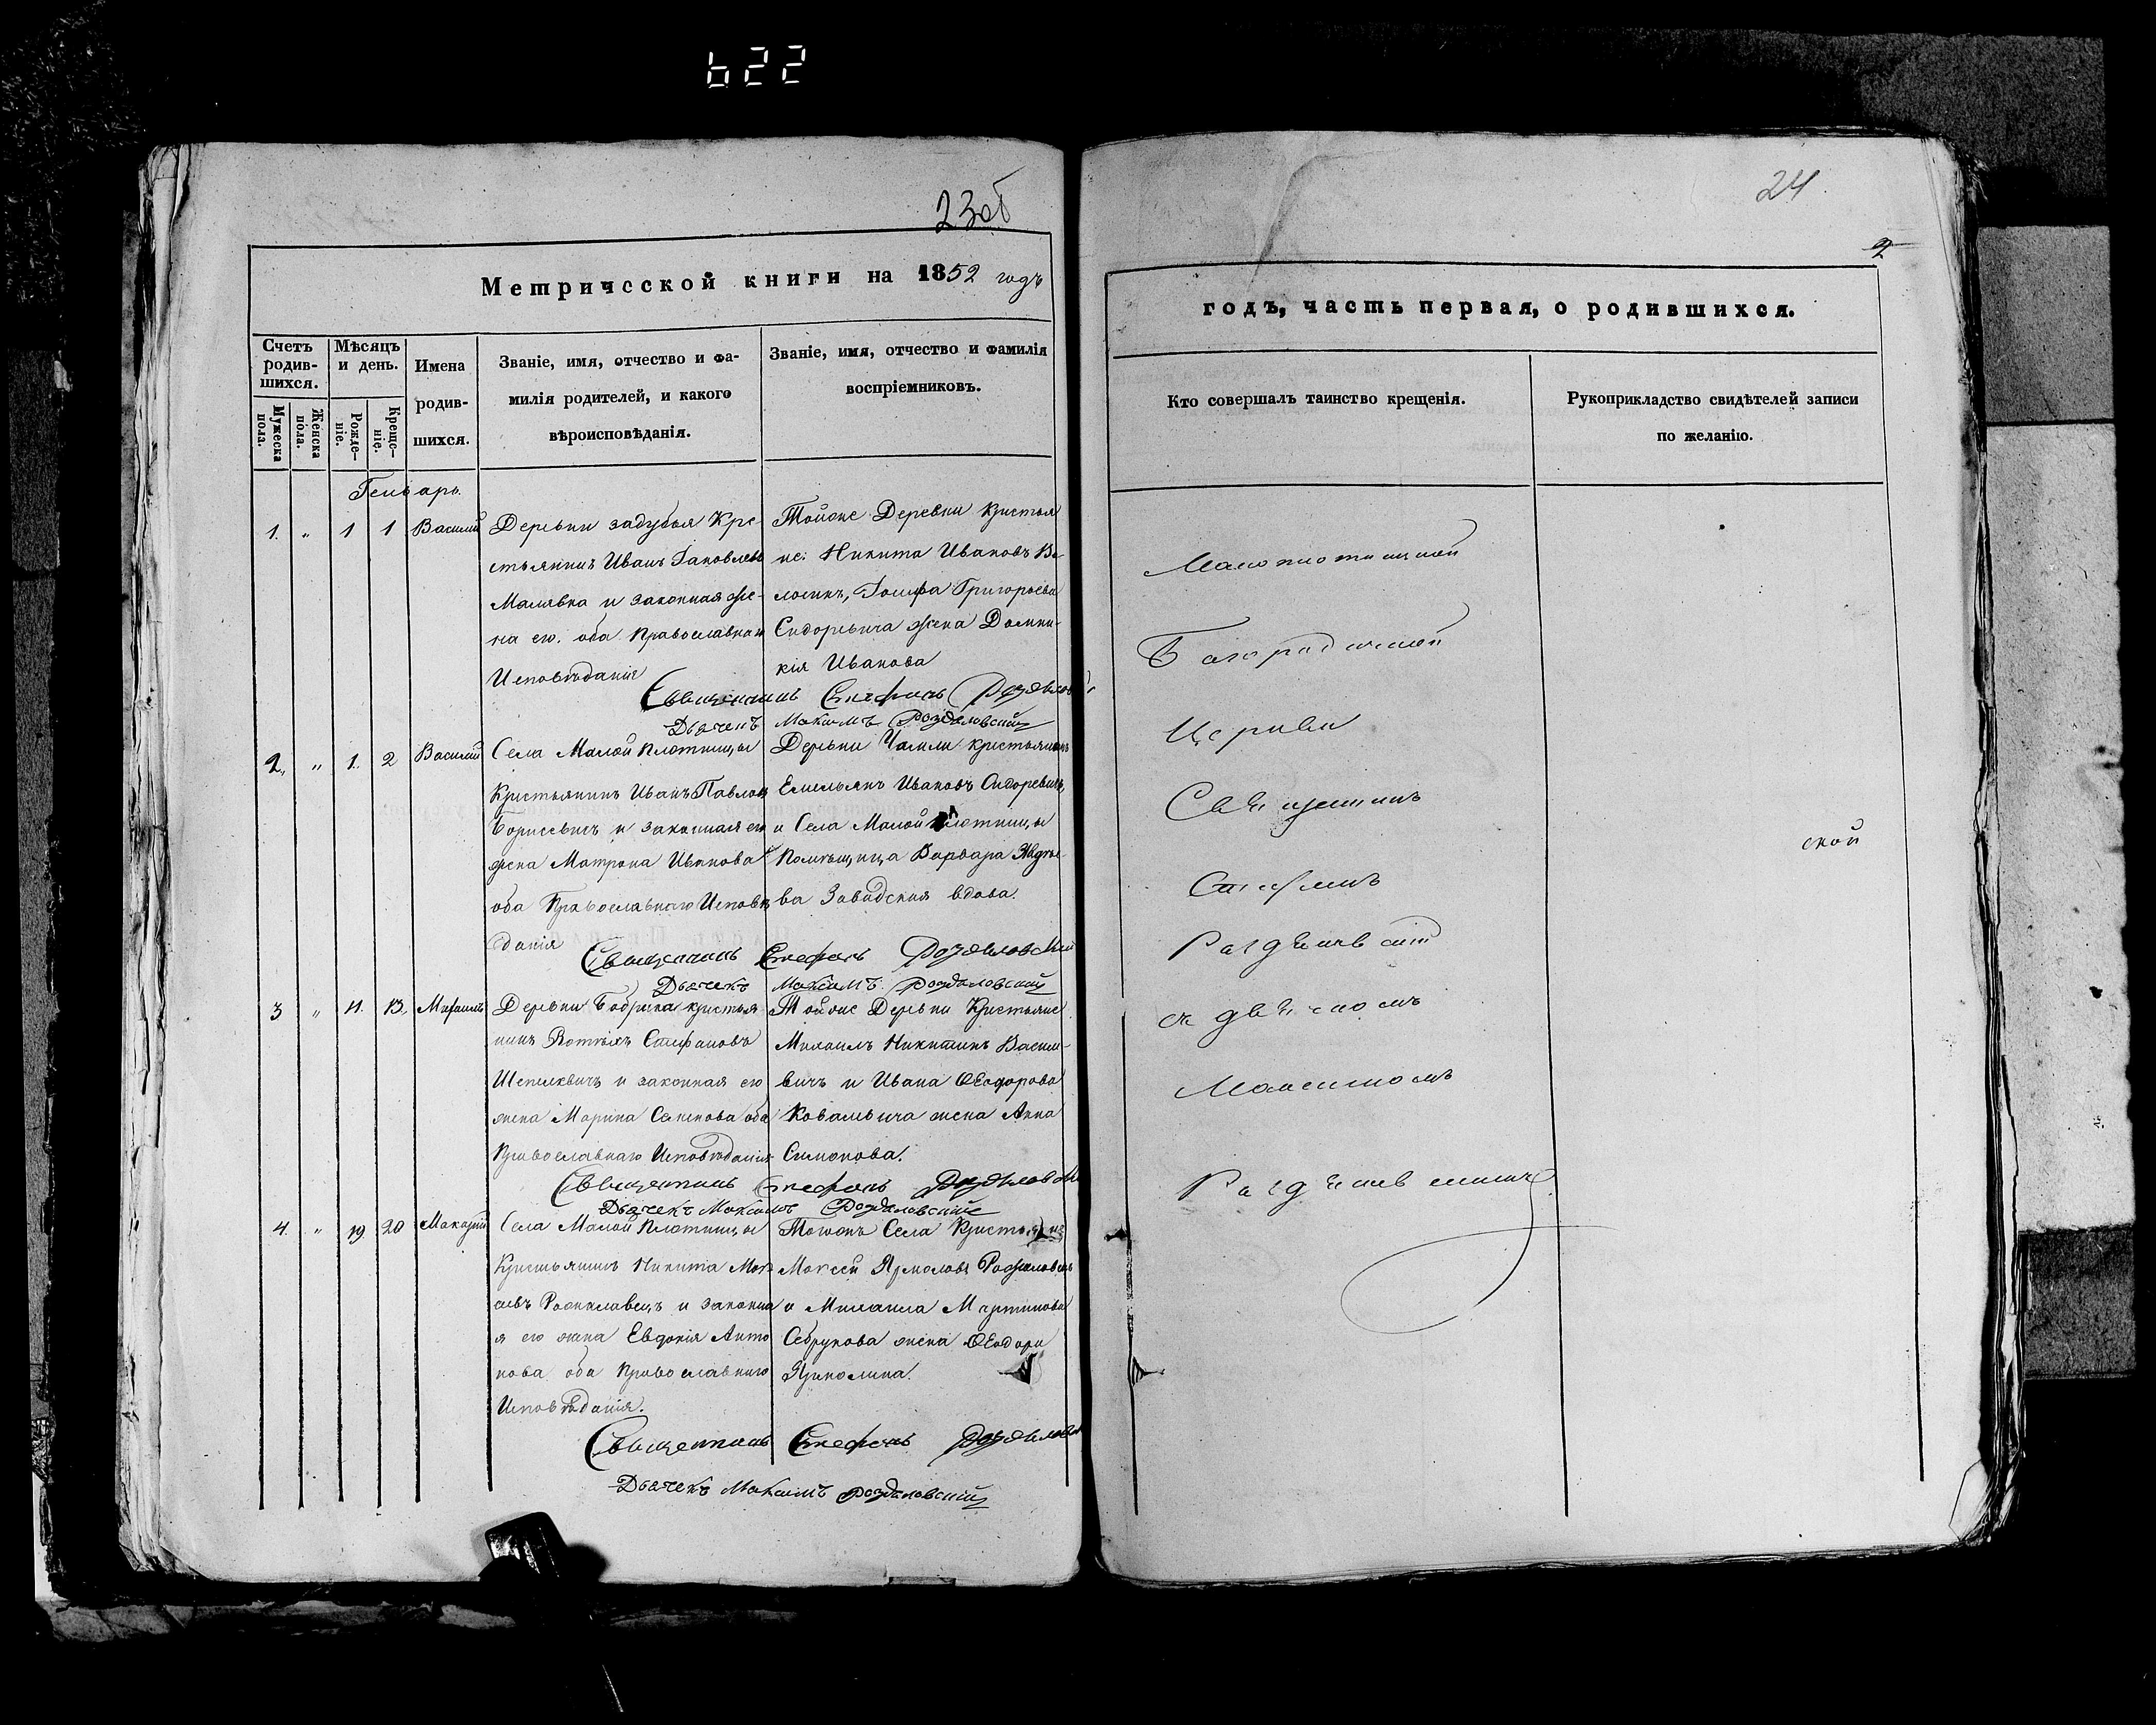 622
23об
Метрической книги на 1852 годъ
Счетъ родившихся.
Мужеска пола.
Женска пола.
Мѣсяцъ и день.
Рожденіе.
Крещеніе.
Имена родившихся.
Званіе, имя, отчество и фамилія родителей, и какого вѣроисповѣданія.
Званіе, имя, отчество и фамилія воспріемниковъ.
Генварь.
1. " 1 1 Василій
Деревни Задубья Кре-
стьянинъ Иванъ Іаковлевъ
Малявка и законная же-
на его. оба Православнаго
Исповѣданія
Тойже Деревни Крестья
не: Никита Ивановъ Ва-
, Іосифа Григорьева
Сидоревича жена Домни-
кія Иванова
Священникъ Стефанъ
Дьячекъ Максимъ Роздяловскій
2. " 1. 2 Василій
Села Малой Плотницы
Крестьянинъ Иванъ Павловъ
Борисевичъ и законная его
жена Матрона Иванова
оба Православнаго Исповѣ
данія
Деревни крестьянинъ
Емельянъ Ивановъ Сидоревичъ,
и Села Малой Плотницы
Помѣщица Варвара
ва Завадская вдова.
Священникъ Стефанъ Роздяловскій
Дьячекъ Максимъ. Роздяловскій
3 " 11. 13. Михаилъ
Деревни крестья
нинъ Стефановъ
и законная его
жена Марина Семенова оба
Православнаго Исповѣданія
Тойже Деревни Крестьяне
Михаилъ Никитинъ Васили-
вичъ и Ивана Ѳеодорова
Ковалевича жена Анна
Симонова.
Священникъ Стефанъ
Дьячекъ Максимъ Роздяловскій
4. " 19 20 Макарій
Села Малой Плотницы
Крестьянинъ Никита
и законна
я его жена Евдокія Анто
нова оба Православнаго
Исповѣданія.
Тогожъ Села
Моисей Ярмоловъ
и Михаила Мартинова
жена Ѳеодора
Ярмолина.
Священникъ Стефанъ
Дьячекъ Максимъ Роздяловскій
24
2
годъ, часть первая, о родившихся.
Кто совершалъ таинство крещенія.
Рукоприкладство свидѣтелей записи по желанію.
Малоплотницкой
Богородичной
Церкви
Священникъ
ской
Стефанъ
съ дьячкомъ
Максимомъ